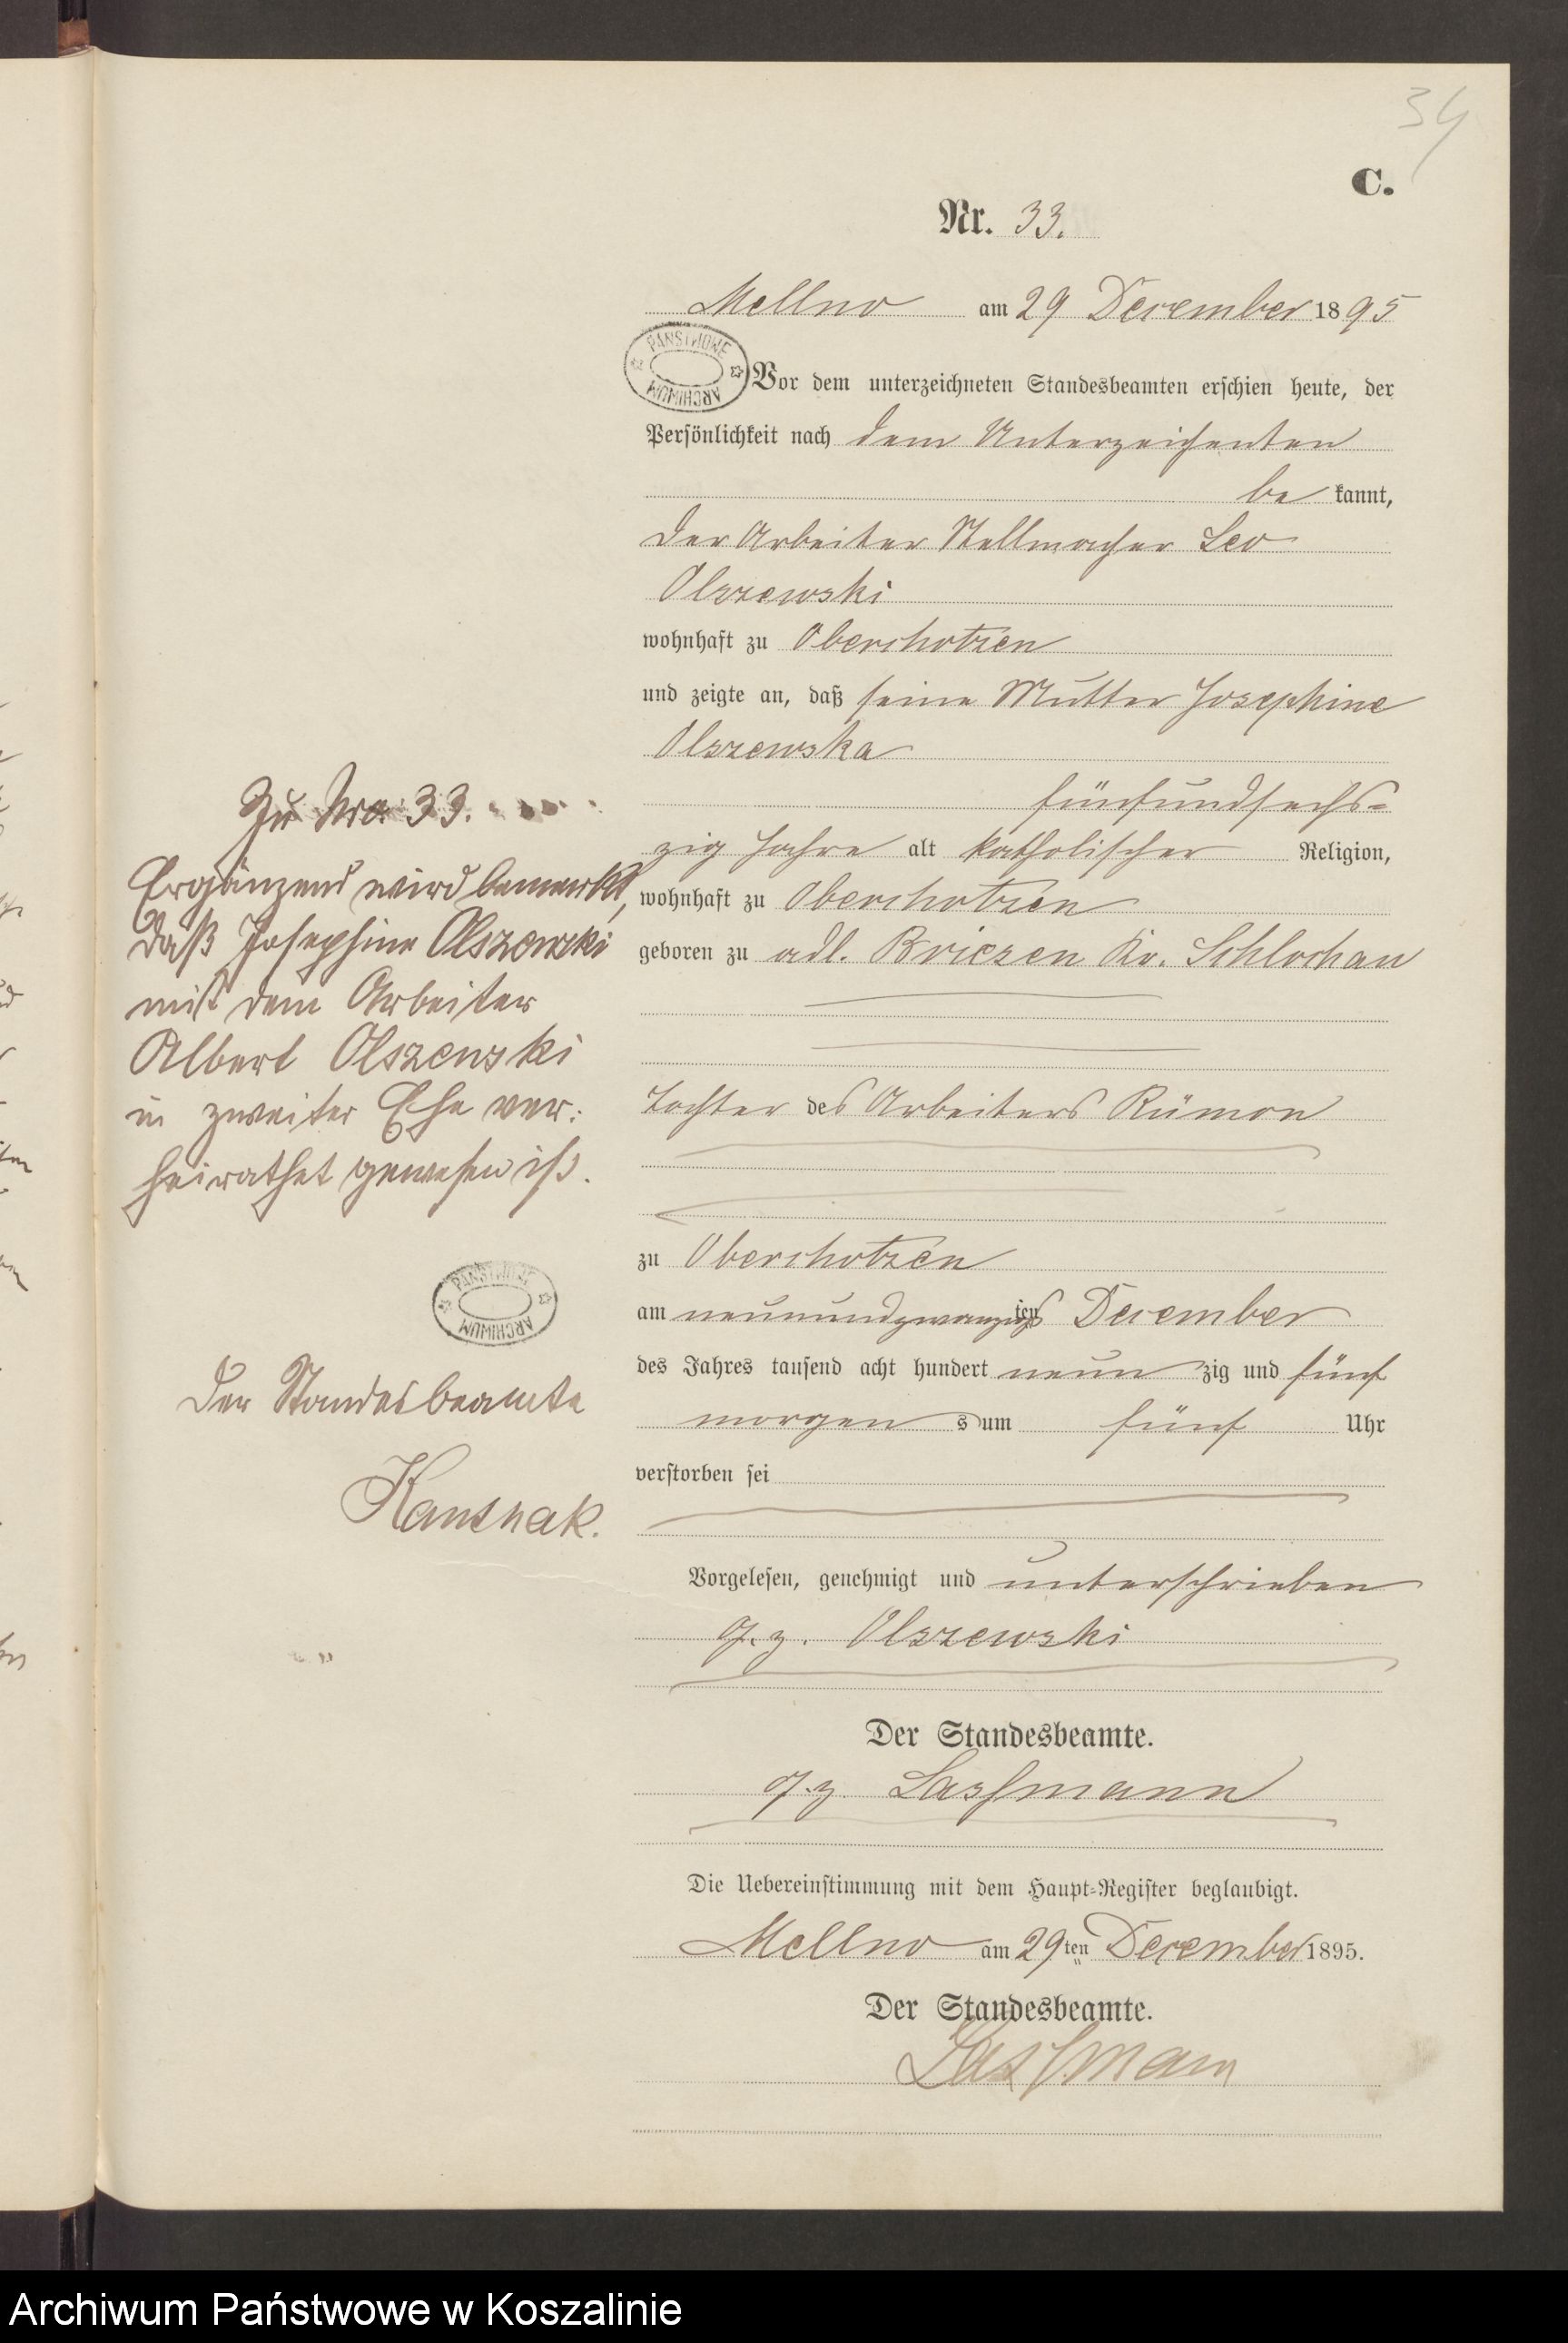 34
C.
Nr. 33.
Mellno am 29 December 1895
PANSTWOWE ARCHIWUM
Vor dem unterzeichneten Standesbeamten erschien heute, der
Persönlichkeit nach dem Unterzeichenten
be kannt,
der Arbeiter Stellmacher Leo
Olszewski
wohnhaft zu Oberchotzen
und zeigte an, daß seine Mutter Josephine
Olszewska
fünfundsechs-
zig Jahre alt katholischer Religion,
wohnhaft zu Oberchotzen
geboren zu adl. Briesen Kr. Schlochau
Tochter des Arbeiters Rümon
zu Oberchotzen
am neunundzwanzigsten December
des Jahres tausend acht hundert neun zig und fünf
morgen s um fünf Uhr
verstorben sei
Vorgelesen, genehmigt und unterschrieben
g. z. Olszewski
Der Standesbeamte.
g. z. Lassmann
Die Uebereinstimmung mit dem Haupt-Register beglaubigt.
Mellno am 29ten December 1895.
Der Standesbeamte.
Lassmann
Zu Nro 33.
Ergänzend wird bemerkt,
daß Josephine Olszewski
mit dem Arbeiter
Albert Olszewski
in zweiter Ehe ver:
heirathet gewesen ist.
PANSTWOWE ARCHIWUM
Der Standesbeamte
Archiwum Państwowe w Koszalinie